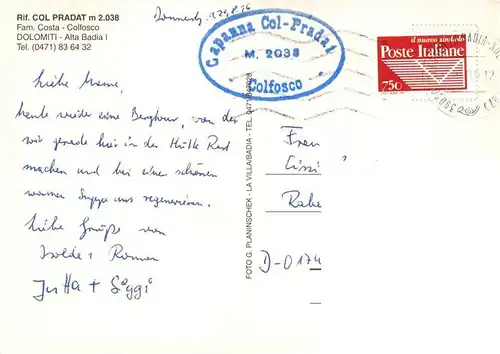 Rif. COL PRADAT m 2.038
Fam. Costa - Colfosco
DOLOMITI - Alta Badia I
Tel. (0471) 83 64 32
Donnerst., 29.8.96
Capanna Col-Pradat
M. 2038
Colfosco
il nuovo simbolo
Poste Italiane
750
liebe Mama,
heute wieder eine Bergtour, von der
wir gerade hier in der Hütte Rast
machen und bei einer schönen
warmen Suppe uns regenerieren.
liebe Grüße von
Isolde, Roman
Jutta + Siggi
FOTO G. PLANINSCHEK - LA VILLA/BADIA - TEL.
Frau
Cissi
Rabe
D-0174